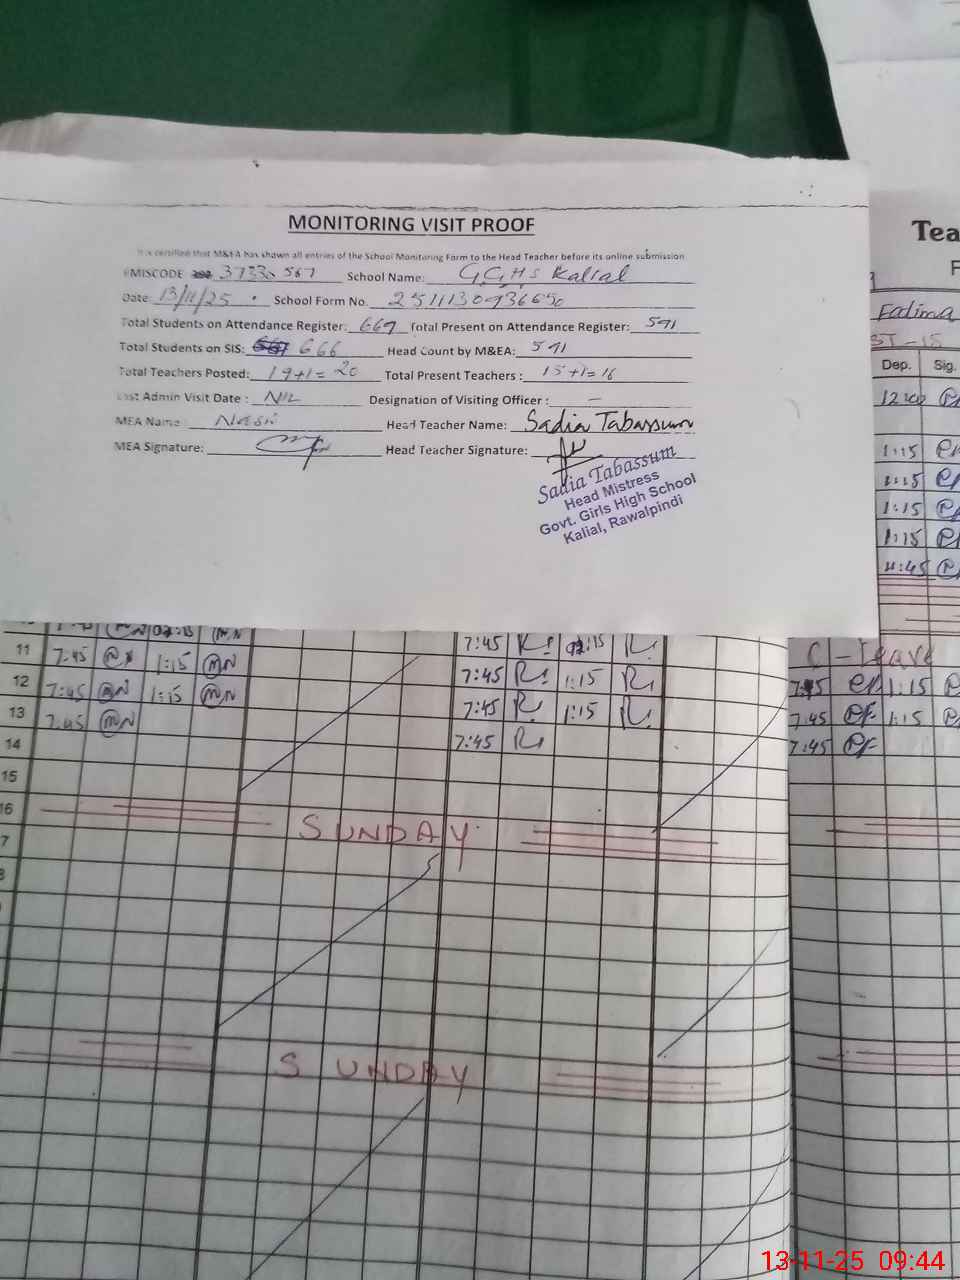 MONITORING VISIT PROOF
It is certified that M&EA has shown all entries of the School Monitoring Form to the Head Teacher before its online submission
EMISCODE 3733 567 School Name: GGHS Kalial
Date: 13/11/25 School Form No. 2511130936650
Total Students on Attendance Register: 669 Total Present on Attendance Register: 591
Total Students on SIS: 666 Head Count by M&EA: 591
Total Teachers Posted: 19+1=20 Total Present Teachers : 15+1=16
Last Admin Visit Date : NIL Designation of Visiting Officer : —
MEA Name: Head Teacher Name: Sadia Tabassum
MEA Signature: Head Teacher Signature:
Sadia Tabassum
Head Mistress
Govt. Girls High School
Kalial, Rawalpindi
Tea
F
Fatima
ST-15
Dep. Sig.
1:15
1:15
1:15
1:15
11:45
C-leave
7:45 1:15
7:45 1:15
7:45
7:45
11 7:45 1:15 MN 7:45 1:15
12 7:45 MN 1:15 MN 7:45 1:15
13 7:45 MN 7:45
14
15
16
SUNDAY
7
8
SUNDAY
13-11-25 09:44